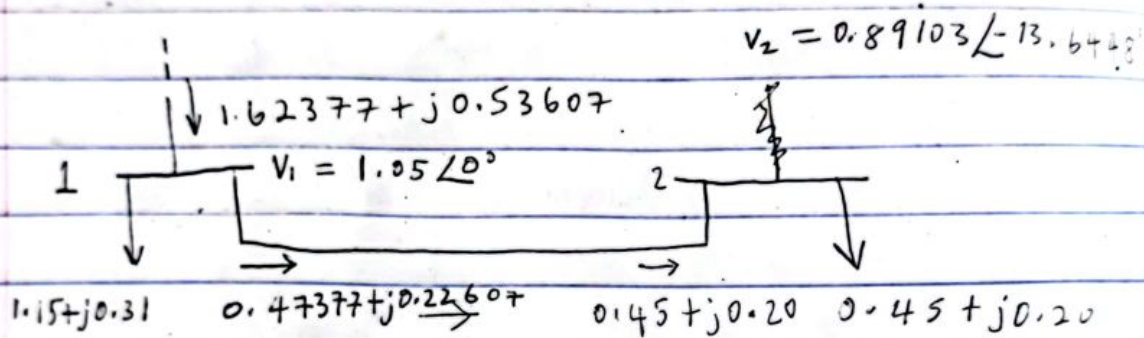 V₂ = 0.89103∠-13.644
1.62377 + j0.53607
1
V₁ = 1.05∠0°
2
1.15+j0.31
0.47377+j0.22607
0.45 +j0.20
0.45 + j0.20